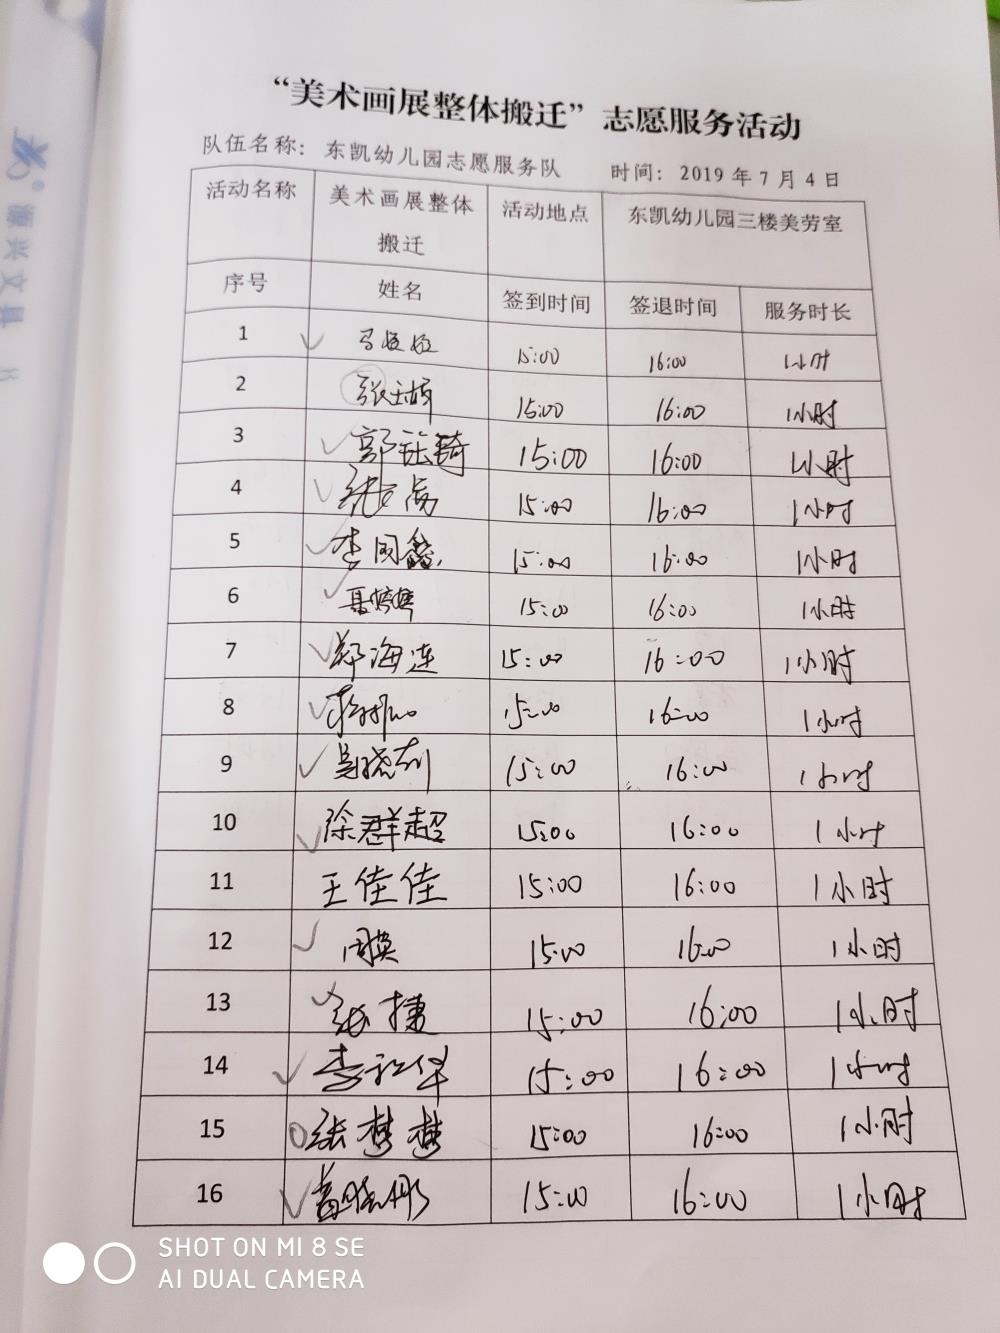 “美术画展整体搬迁”志愿服务活动
队伍名称：东凯幼儿园志愿服务队 时间：2019年7月4日
活动名称 美术画展整体搬迁 活动地点 东凯幼儿园三楼美劳室
序号 姓名 签到时间 签退时间 服务时长
1 15:00 16:00 1小时
2 15:00 16:00 1小时
3 15:00 16:00 1小时
4 15:00 16:00 1小时
5 15:00 16:00 1小时
6 15:00 16:00 1小时
7 郑海连 15:00 16:00 1小时
8 15:00 16:00 1小时
9 15:00 16:00 1小时
10 徐群超 15:00 16:00 1小时
11 王佳佳 15:00 16:00 1小时
12 周英 15:00 16:00 1小时
13 张捷 15:00 16:00 1小时
14 15:00 16:00 1小时
15 张梦梦 15:00 16:00 1小时
16 15:00 16:00 1小时
SHOT ON MI 8 SE
AI DUAL CAMERA